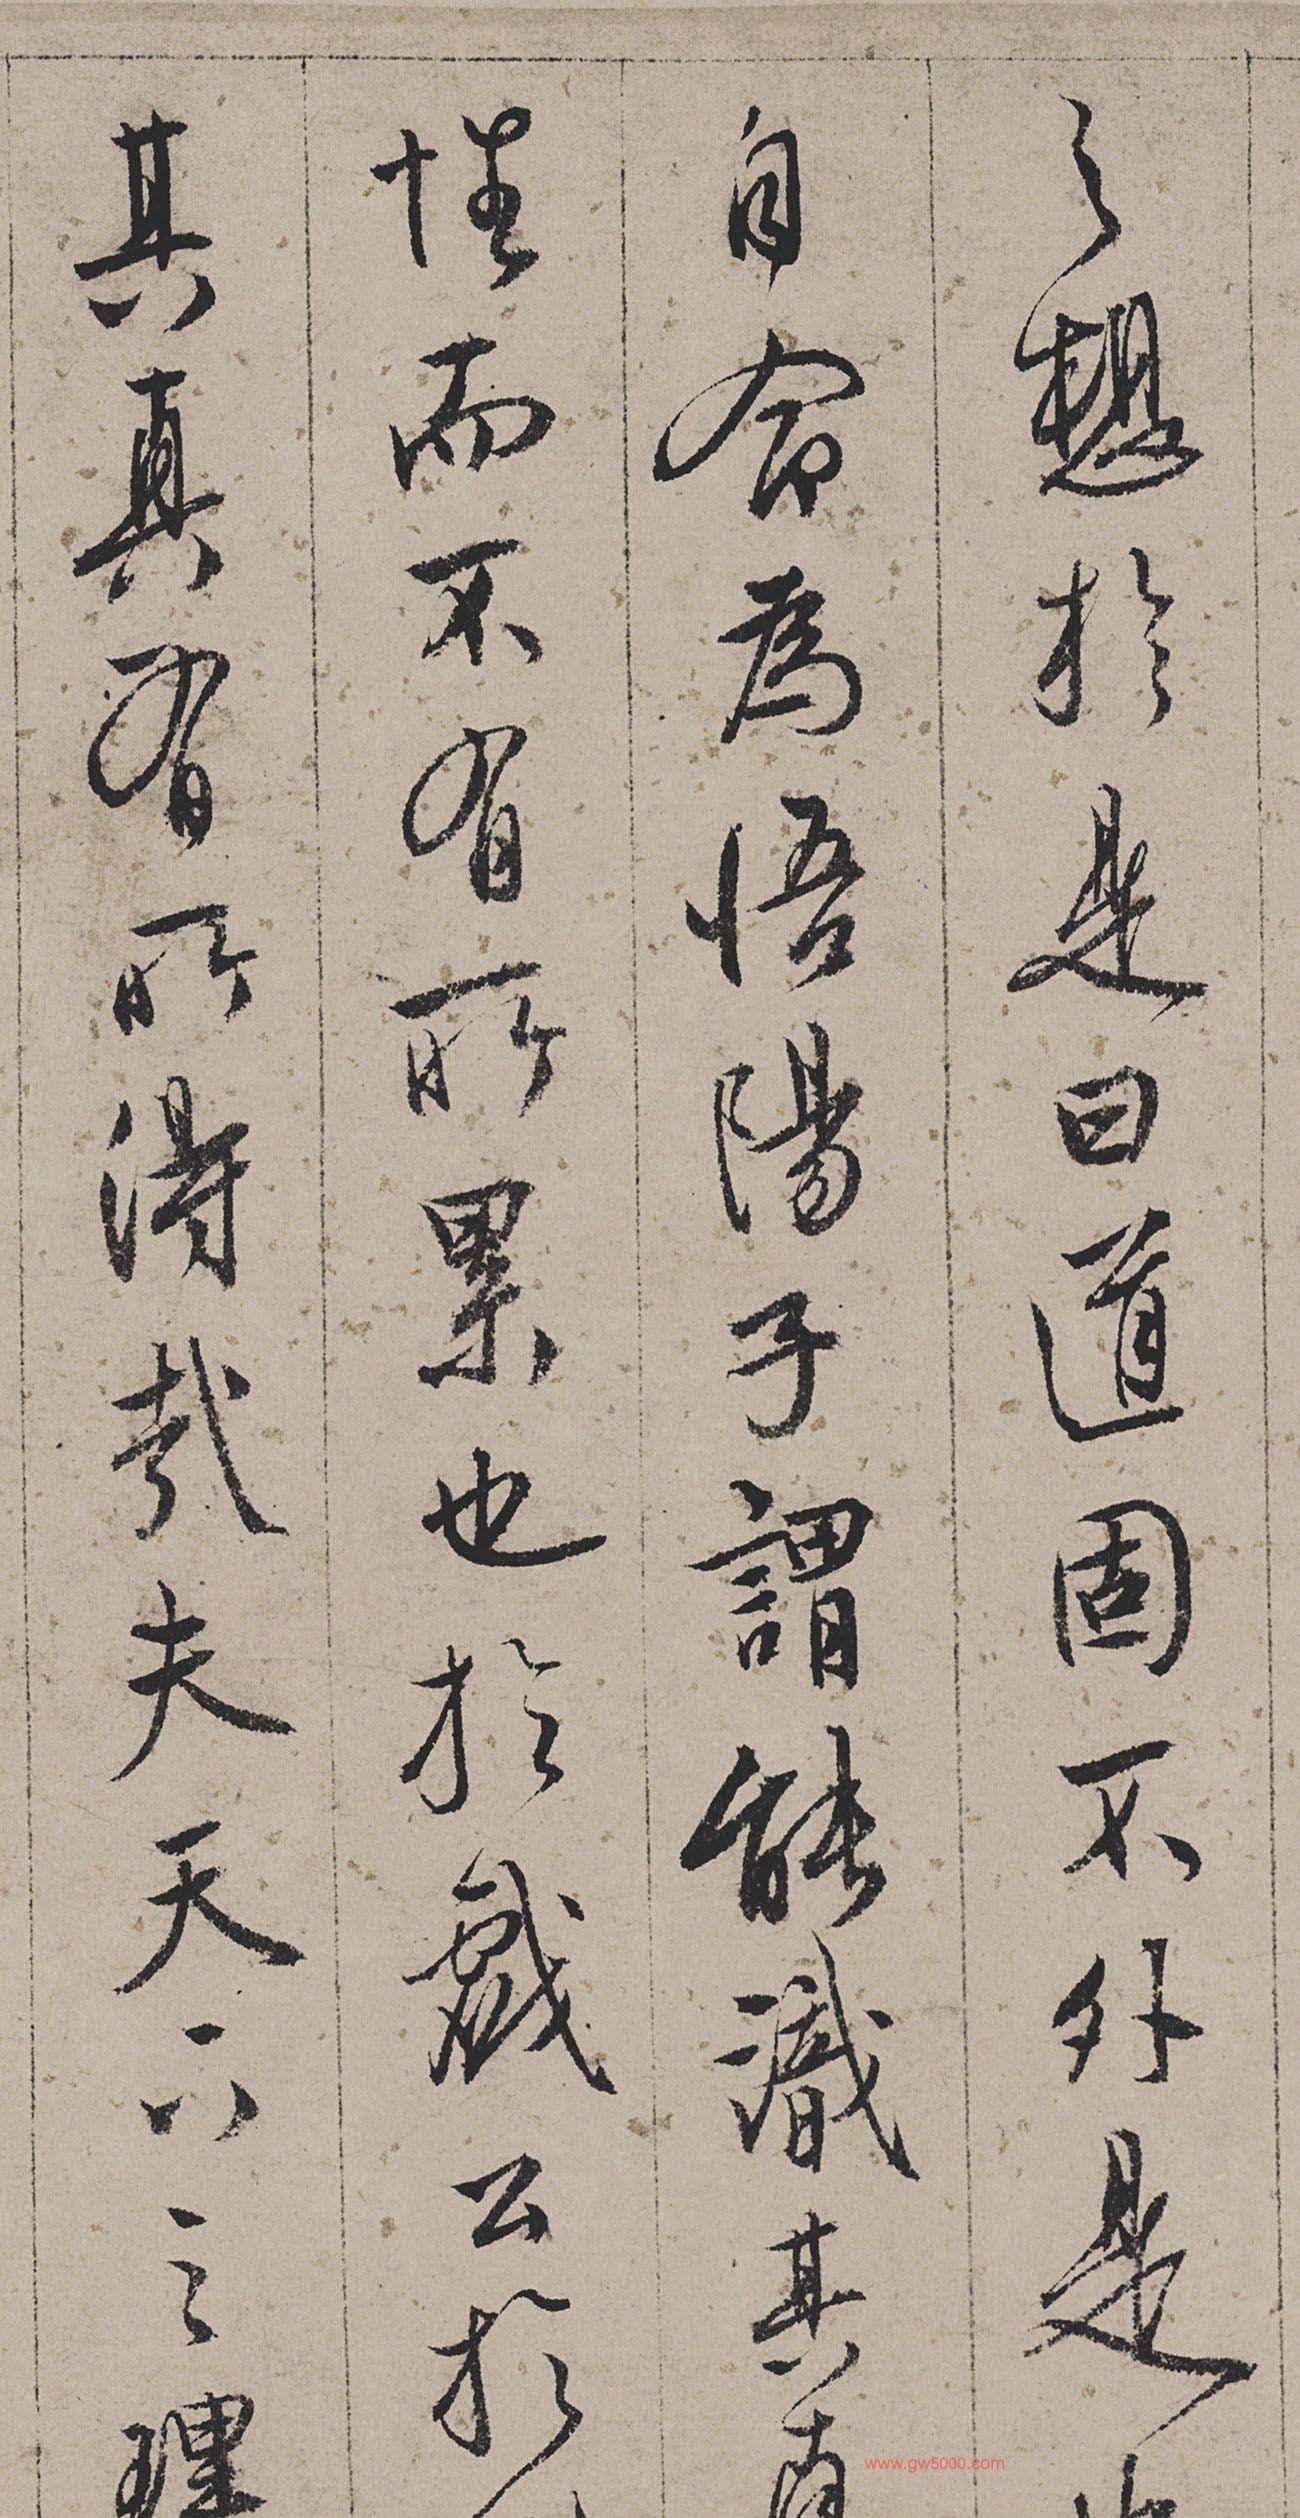 之想於是曰道固不外是
自命為悟陽子謂能識其真
性而不有所累也於戲公於
其真有所得哉夫天下之理
www.gw5000.com